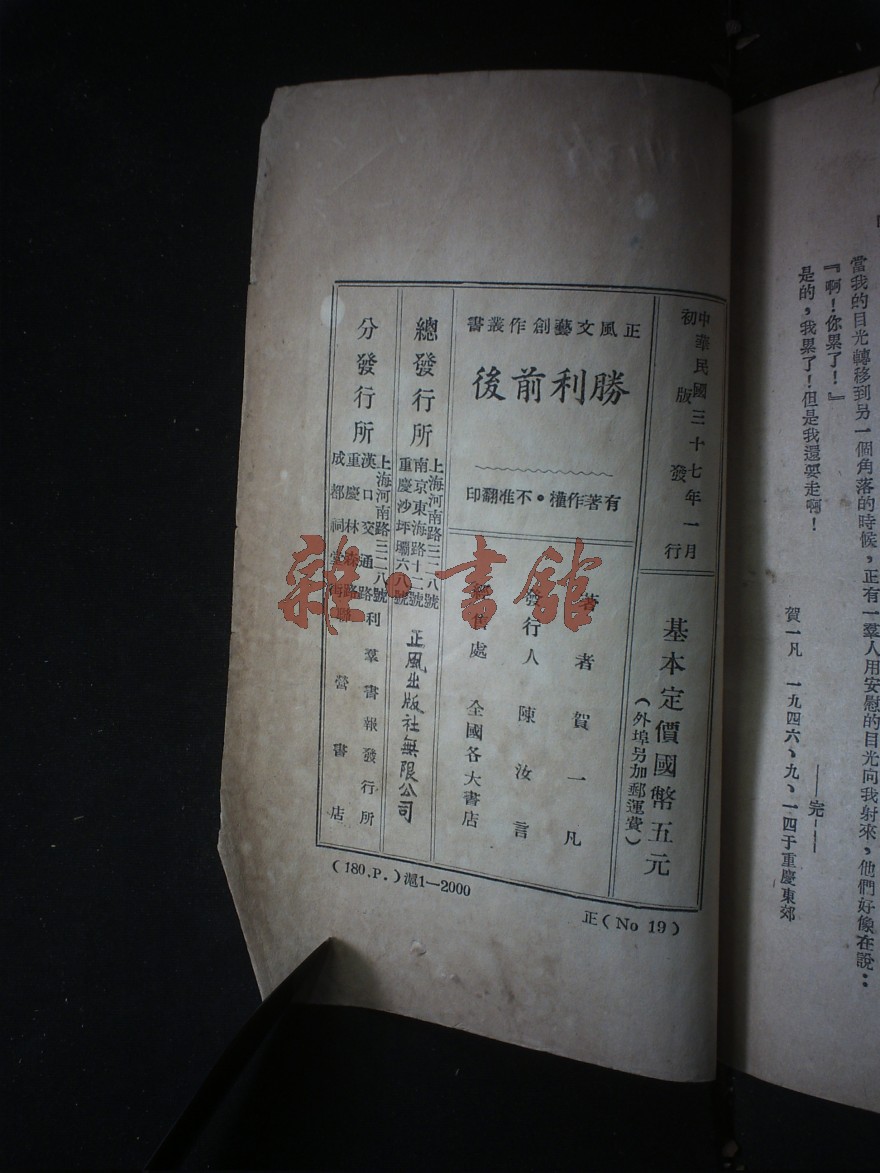 當我的目光轉移到另一個角落的時候，正有一羣人用安慰的目光向我射來，他們好像在說：：
『啊！你累了！』
是的，我累了！但是我還要走啊！
——完——
賀一凡　一九四六、九、一四于重慶東郊
中華民國三十七年一月
初版發行
基本定價國幣五元
（外埠另加郵運費）
正風文藝創作叢書
勝利前後
有著作權・不准翻印
著者　賀一凡
發行人　陳汝言
經售處　全國各大書店
總發行所
上海河南路三二八號
南京東海路十二號
重慶沙坪壩六八號
正風出版社無限公司
分發行所
上海河南路三二八號
漢口交通路利羣書報發行所
重慶林森路
成都祠堂街聯營書店
(180.P.)滬1—2000
正(No 19)
雜・書館